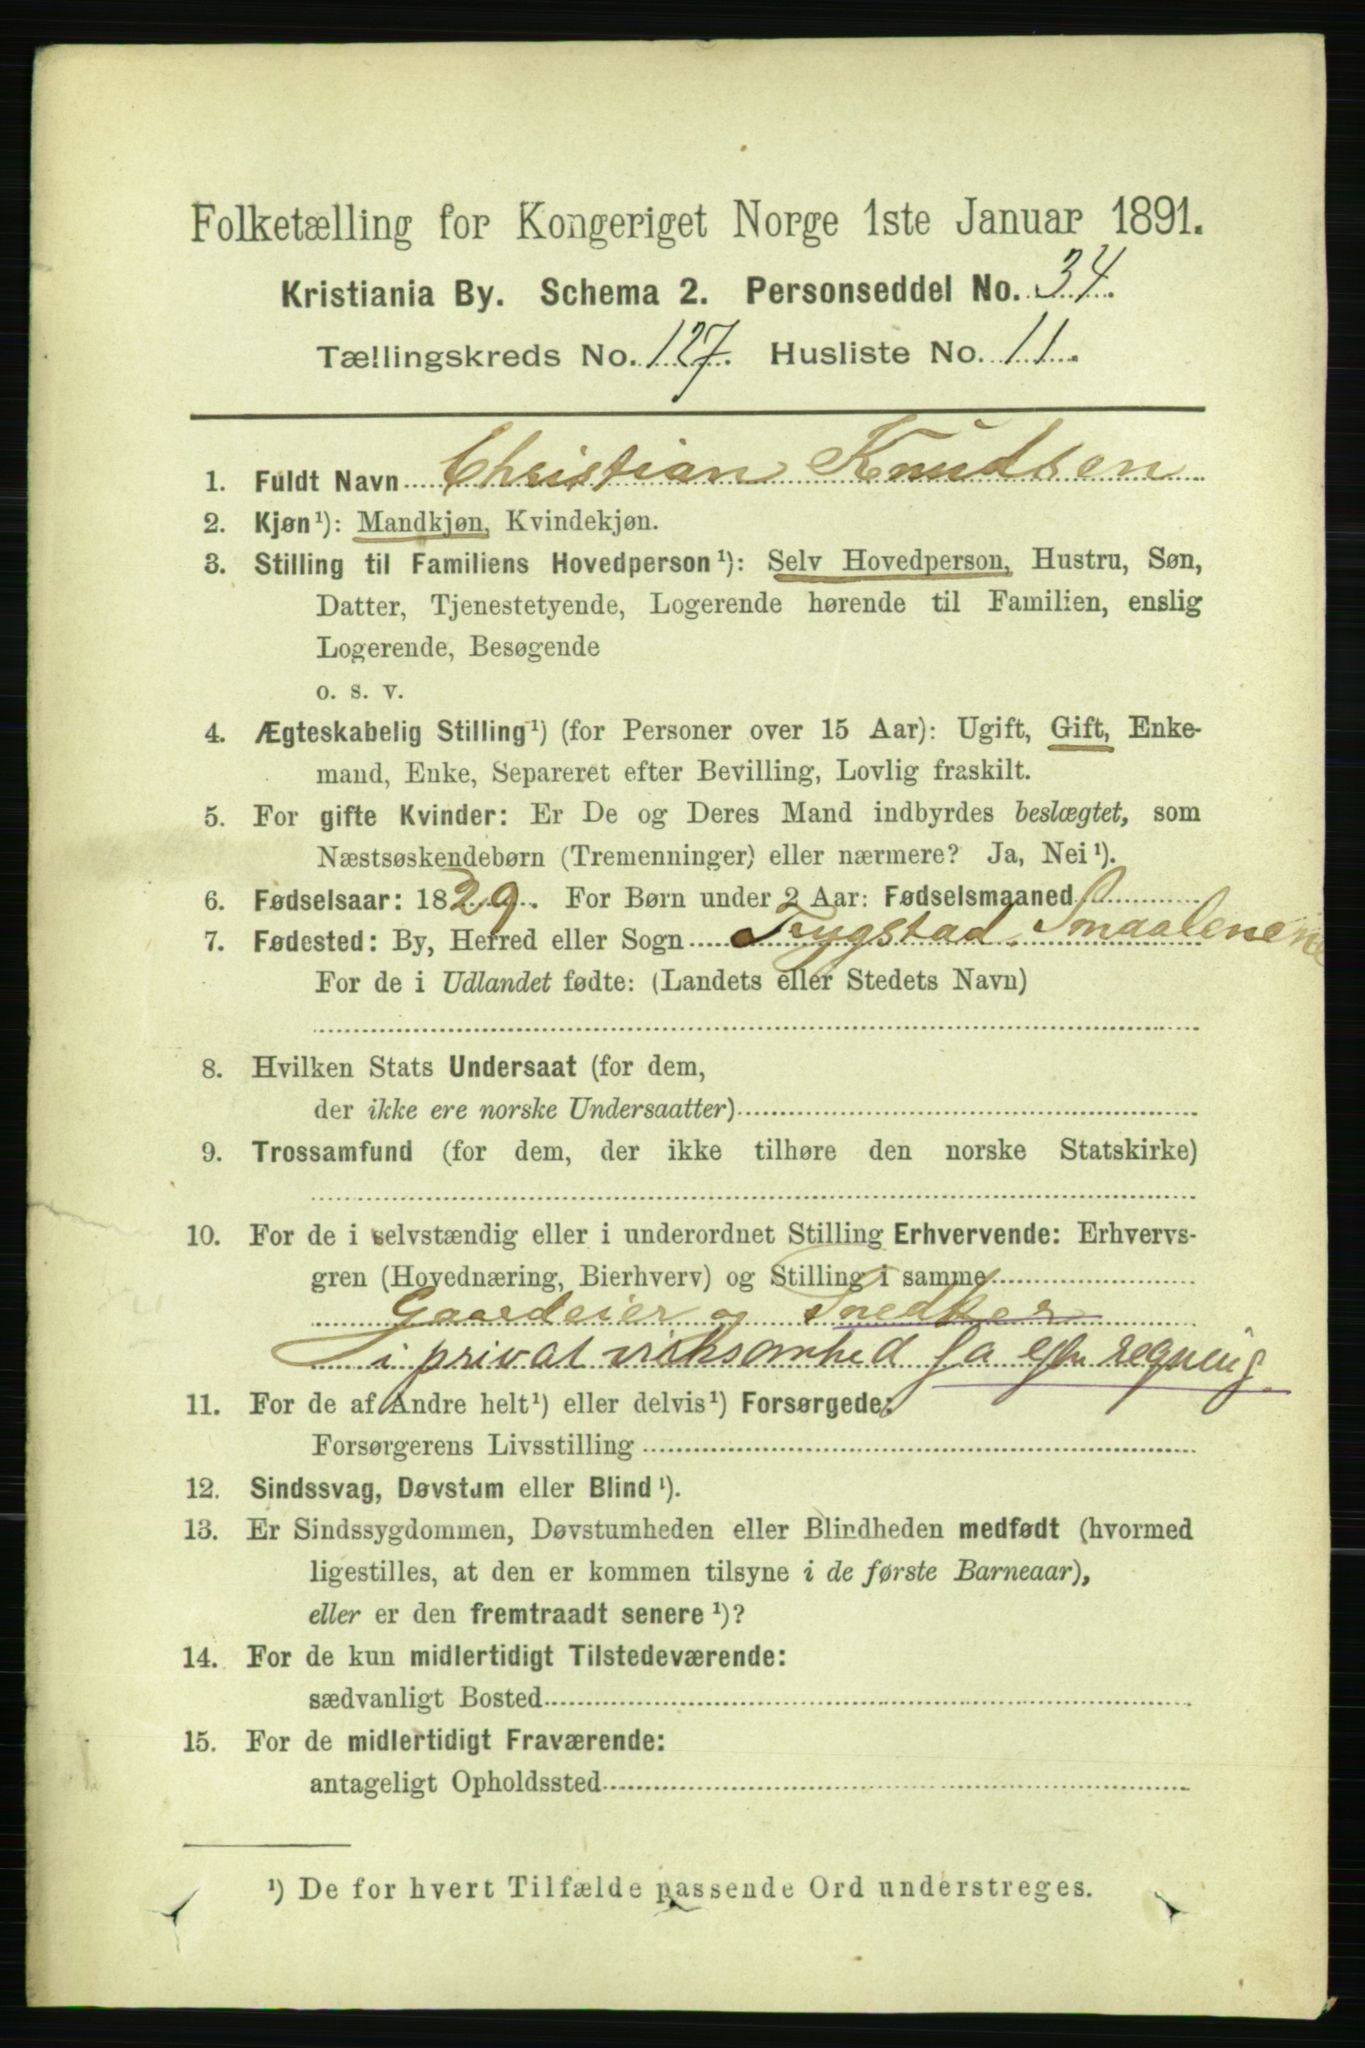 Folketælling for Kongeriget Norge 1ste Januar 1891.
Kristiania By. Schema 2. Personseddel No. 34.
Tællingskreds No. 127. Husliste No. 11.
1. Fuldt Navn Christian Knudsen
2. Kjøn¹): Mandkjøn, Kvindekjøn.
3. Stilling til Familiens Hovedperson¹): Selv Hovedperson, Hustru, Søn,
Datter, Tjenestetyende, Logerende hørende til Familien, enslig
Logerende, Besøgende
o. s. v.
4. Ægteskabelig Stilling¹) (for Personer over 15 Aar): Ugift, Gift, Enke-
mand, Enke, Separeret efter Bevilling, Lovlig fraskilt.
5. For gifte Kvinder: Er De og Deres Mand indbyrdes beslægtet, som
Næstsøskendebørn (Tremenninger) eller nærmere? Ja, Nei¹).
6. Fødselsaar: 1829. For Børn under 2 Aar: Fødselsmaaned
7. Fødested: By, Herred eller Sogn Trygstad. Smaalenene
For de i Udlandet fødte: (Landets eller Stedets Navn)
8. Hvilken Stats Undersaat (for dem,
der ikke ere norske Undersaatter)
9. Trossamfund (for dem, der ikke tilhøre den norske Statskirke)
10. For de i selvstændig eller i underordnet Stilling Erhvervende: Erhvervs-
gren (Hovednæring, Bierhverv) og Stilling i samme
Gaardeier og Snedker
i privat virksomhed egen regning
11. For de af Andre helt¹) eller delvis¹) Forsørgede:
Forsørgerens Livsstilling
12. Sindssvag, Døvstum eller Blind¹).
13. Er Sindssygdommen, Døvstumheden eller Blindheden medfødt (hvormed
ligestilles, at den er kommen tilsyne i de første Barneaar),
eller er den fremtraadt senere¹)?
14. For de kun midlertidigt Tilstedeværende:
sædvanligt Bosted
15. For de midlertidigt Fraværende:
antageligt Opholdssted
¹) De for hvert Tilfælde passende Ord understreges.